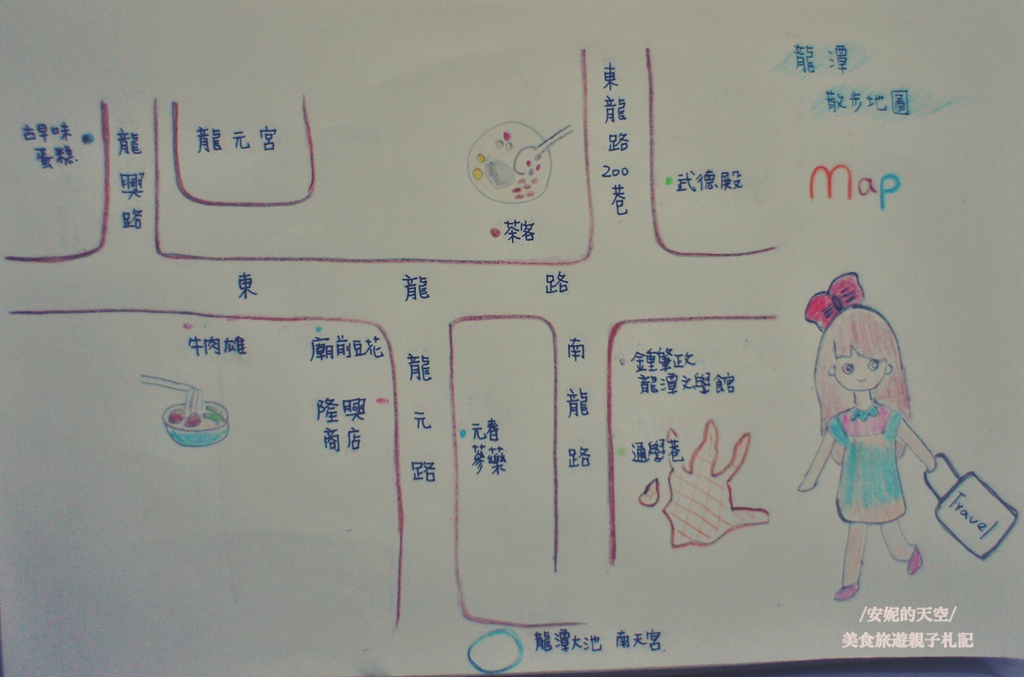 龍潭
散步地圖
Map
古早味
蛋糕
龍興路
龍元宮
東龍路200巷
武德殿
茶客
東龍路
牛肉雄
廟前豆花
隆興
商店
龍元路
元春
蔘藥
南龍路
鍾肇政
龍潭文學館
通學巷
Travel
龍潭大池 南天宮
/安妮的天空/
美食旅遊親子札記